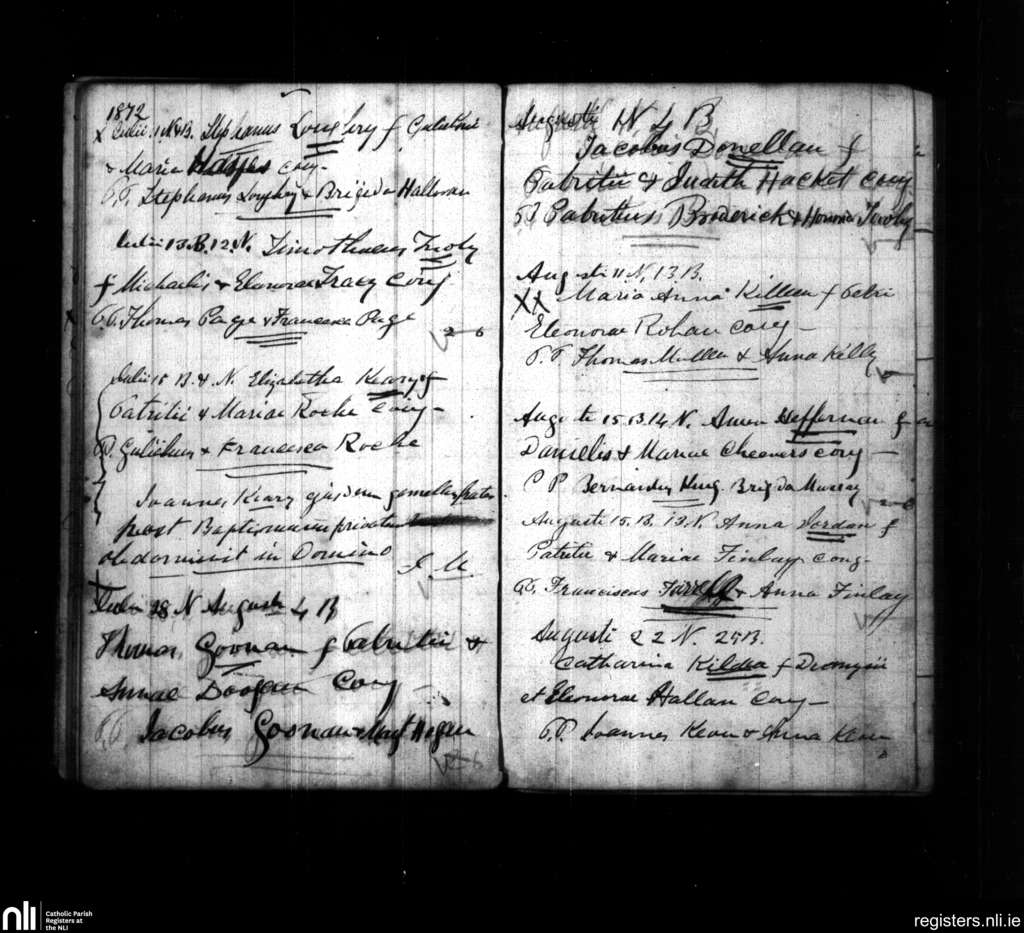 1872
Julii 11 N & B. Stephanus Loughery f
& Maria Hayes conj-
P.P. Stephanus Loughry & Brigida Halloran
Julii 13 B. 12. N. Timothaeus Tuohy
f Michaelis & Elenorae Tracy Conj
P.P. Thomas Page & Francesca Page
2-6
Julii 15 B. & N. Elizabetha Keary f
Patritii & Mariae Roche Conj-
P. Gulielmus & Francesca Roche
Joannes Keary ejusdem gemellus frater
post Baptismum privatum
obdormivit in Domino J. M.
Julii 28 N Augusti 4 B
Thomas Goonan f Patritii &
Annae Doogan Conj
P.P. Jacobus Goonan & Mart Hogan
2-6
Augusti 1 N. 4 B
Jacobus Donellan f
Patritii & Judith Hacket Conj
P.P. Patritius Broderick & Honoria Tuohy
Augusti 11. N. 13. B.
XX Maria Anna Killeen f Petri
Eleonorae Rohan Conj-
P.P. Thomas Mullen & Anna Kelly
Augusti 15. B. 14. N. Heffernan f
Danielis & Mariae Cheevers conj-
P P Bernardus King Brigida Murray
Augusti 15. B. 13. N. Anna Jordan f
Patritii & Mariae Finlay Conj.
P.P. Franciscus & Anna Finlay
Augusti 22 N. 25 B.
Catharina Kildea f Dionysii
et Eleonorae Hallan Conj-
P.P. Joannes Kean & Anna Kean
nli
Catholic Parish
Registers at
the NLI
registers.nli.ie